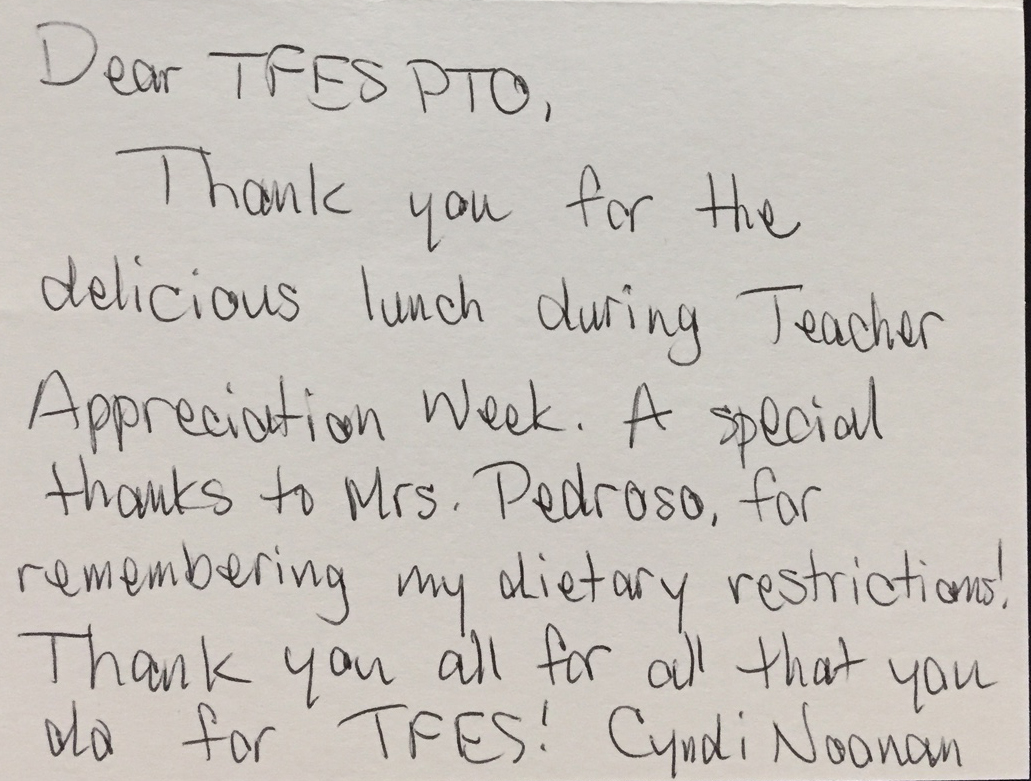 Dear TFES PTO,
Thank you for the
delicious lunch during Teacher
Appreciation Week. A special
thanks to Mrs. Pedroso, for
remembering my dietary restrictions!
Thank you all for all that you
do for TFES! Cyndi Noonan